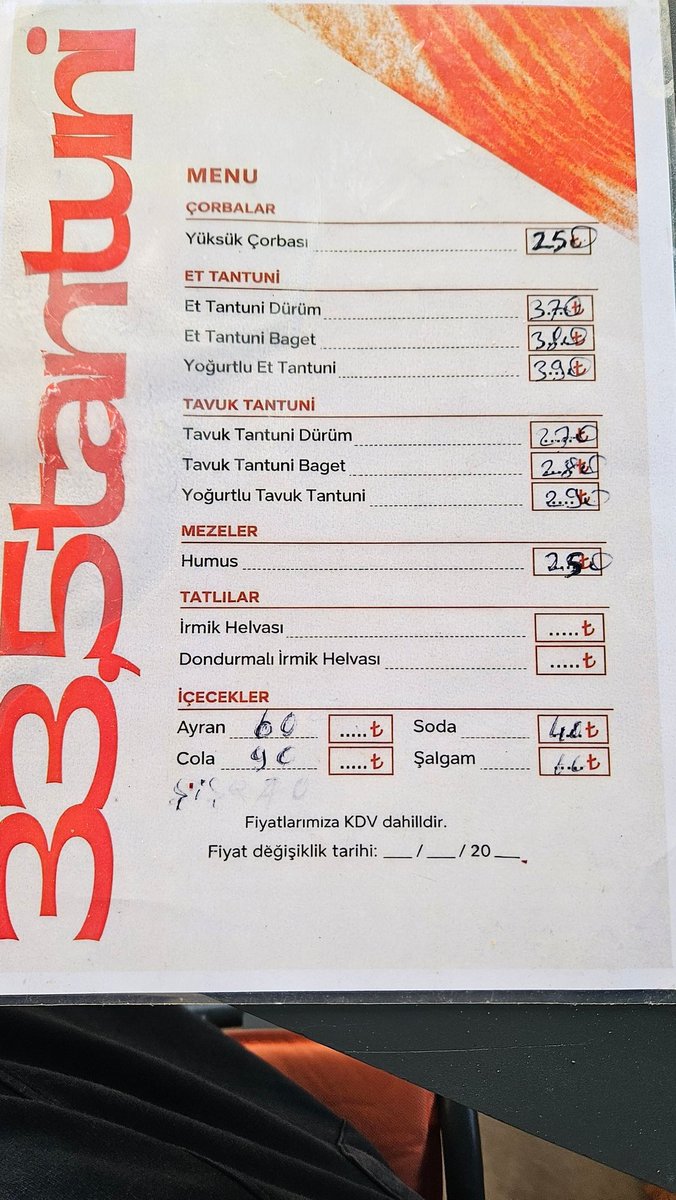 33,5tantuni
MENU
ÇORBALAR
Yüksük Çorbası 250₺
ET TANTUNİ
Et Tantuni Dürüm 370₺
Et Tantuni Baget 380₺
Yoğurtlu Et Tantuni 390₺
TAVUK TANTUNİ
Tavuk Tantuni Dürüm 270₺
Tavuk Tantuni Baget 280₺
Yoğurtlu Tavuk Tantuni 290₺
MEZELER
Humus 250
TATLILAR
İrmik Helvası .....₺
Dondurmalı İrmik Helvası .....₺
İÇECEKLER
Ayran 60 .....₺ Soda 40₺
Cola 90 .....₺ Şalgam ₺
Fiyatlarımıza KDV dahilldir.
Fiyat değişiklik tarihi: __ / __ / 20 __